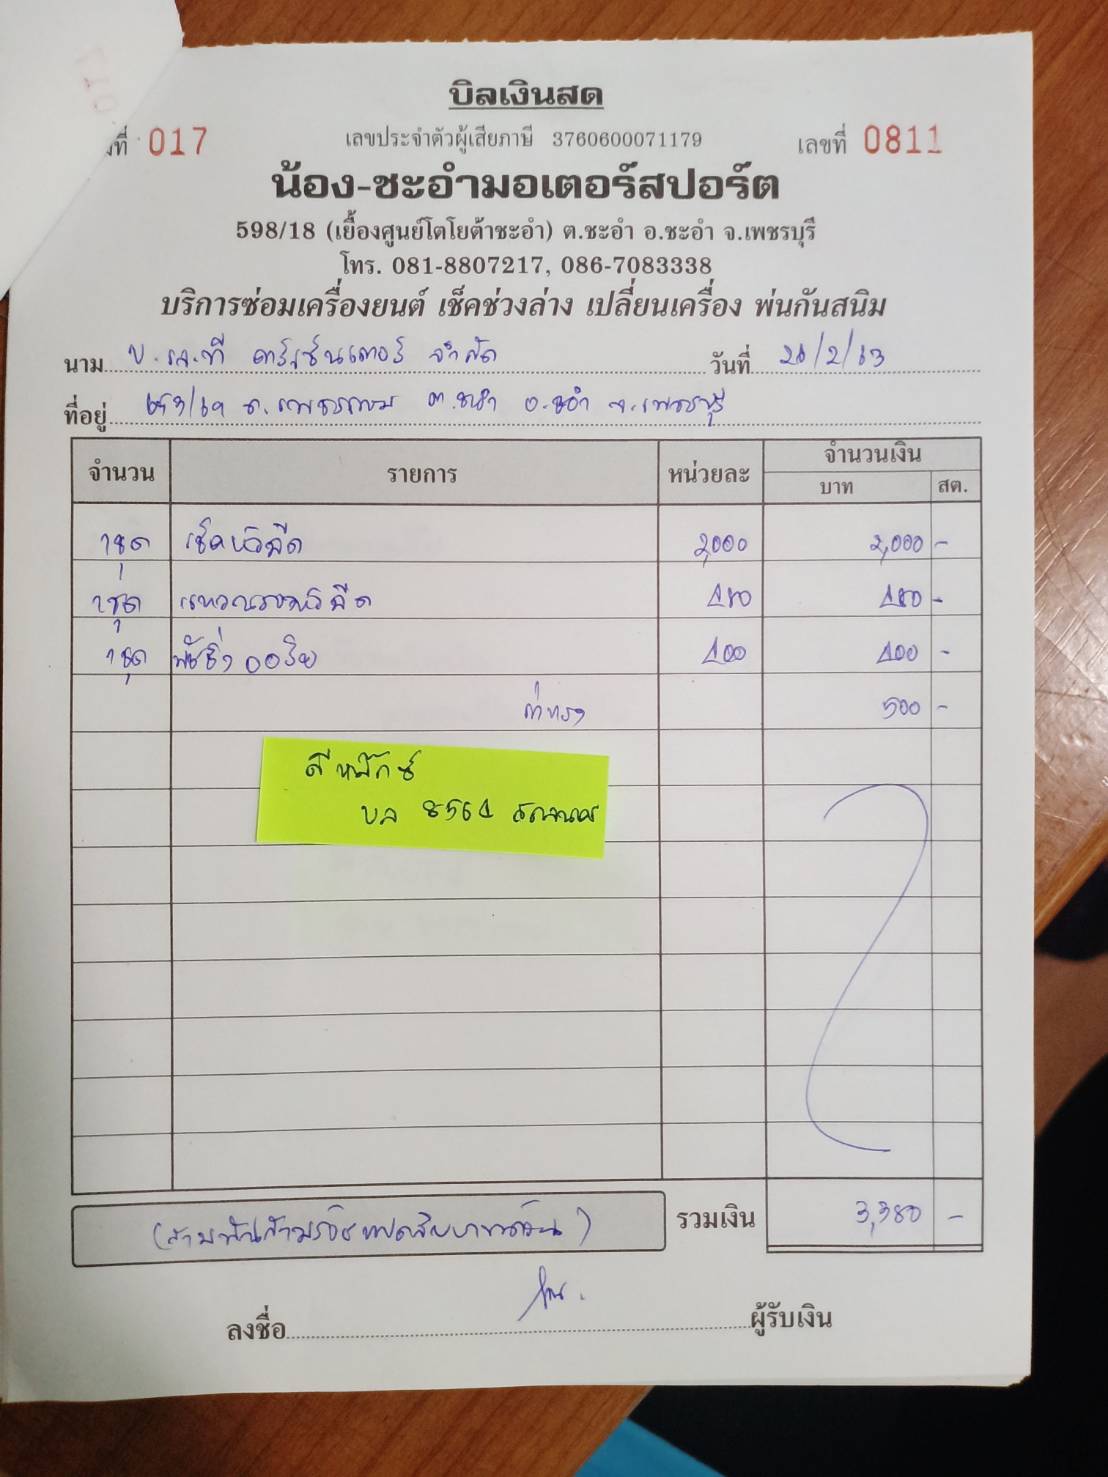 บิลเงินสด
ที่ 017 เลขประจำตัวผู้เสียภาษี 3760600071179 เลขที่ 0811
น้อง-ชะอำมอเตอร์สปอร์ต
598/18 (เยื้องศูนย์โตโยต้าชะอำ) ต.ชะอำ อ.ชะอำ จ.เพชรบุรี
โทร. 081-8807217, 086-7083338
บริการซ่อมเครื่องยนต์ เช็คช่วงล่าง เปลี่ยนเครื่อง พ่นกันสนิม
นาม คาร์เซ็นเตอร์ จำกัด วันที่ /2/63
ที่อยู่ ถ.เพชรเกษม ต.ชะอำ อ.ชะอำ จ.เพชรบุรี
จำนวน รายการ หน่วยละ จำนวนเงิน
บาท สต.
1ชุด เช็คหัวฉีด 2,000 2,000 -
1ชุด แหวนรองหัวฉีด 480 480 -
1ชุด 400 400 -
ค่าแรง 500 -
ดีแม็กซ์
บล 8564
(สามพันสามร้อยแปดสิบบาทถ้วน) รวมเงิน 3,380 -
ลงชื่อ ผู้รับเงิน